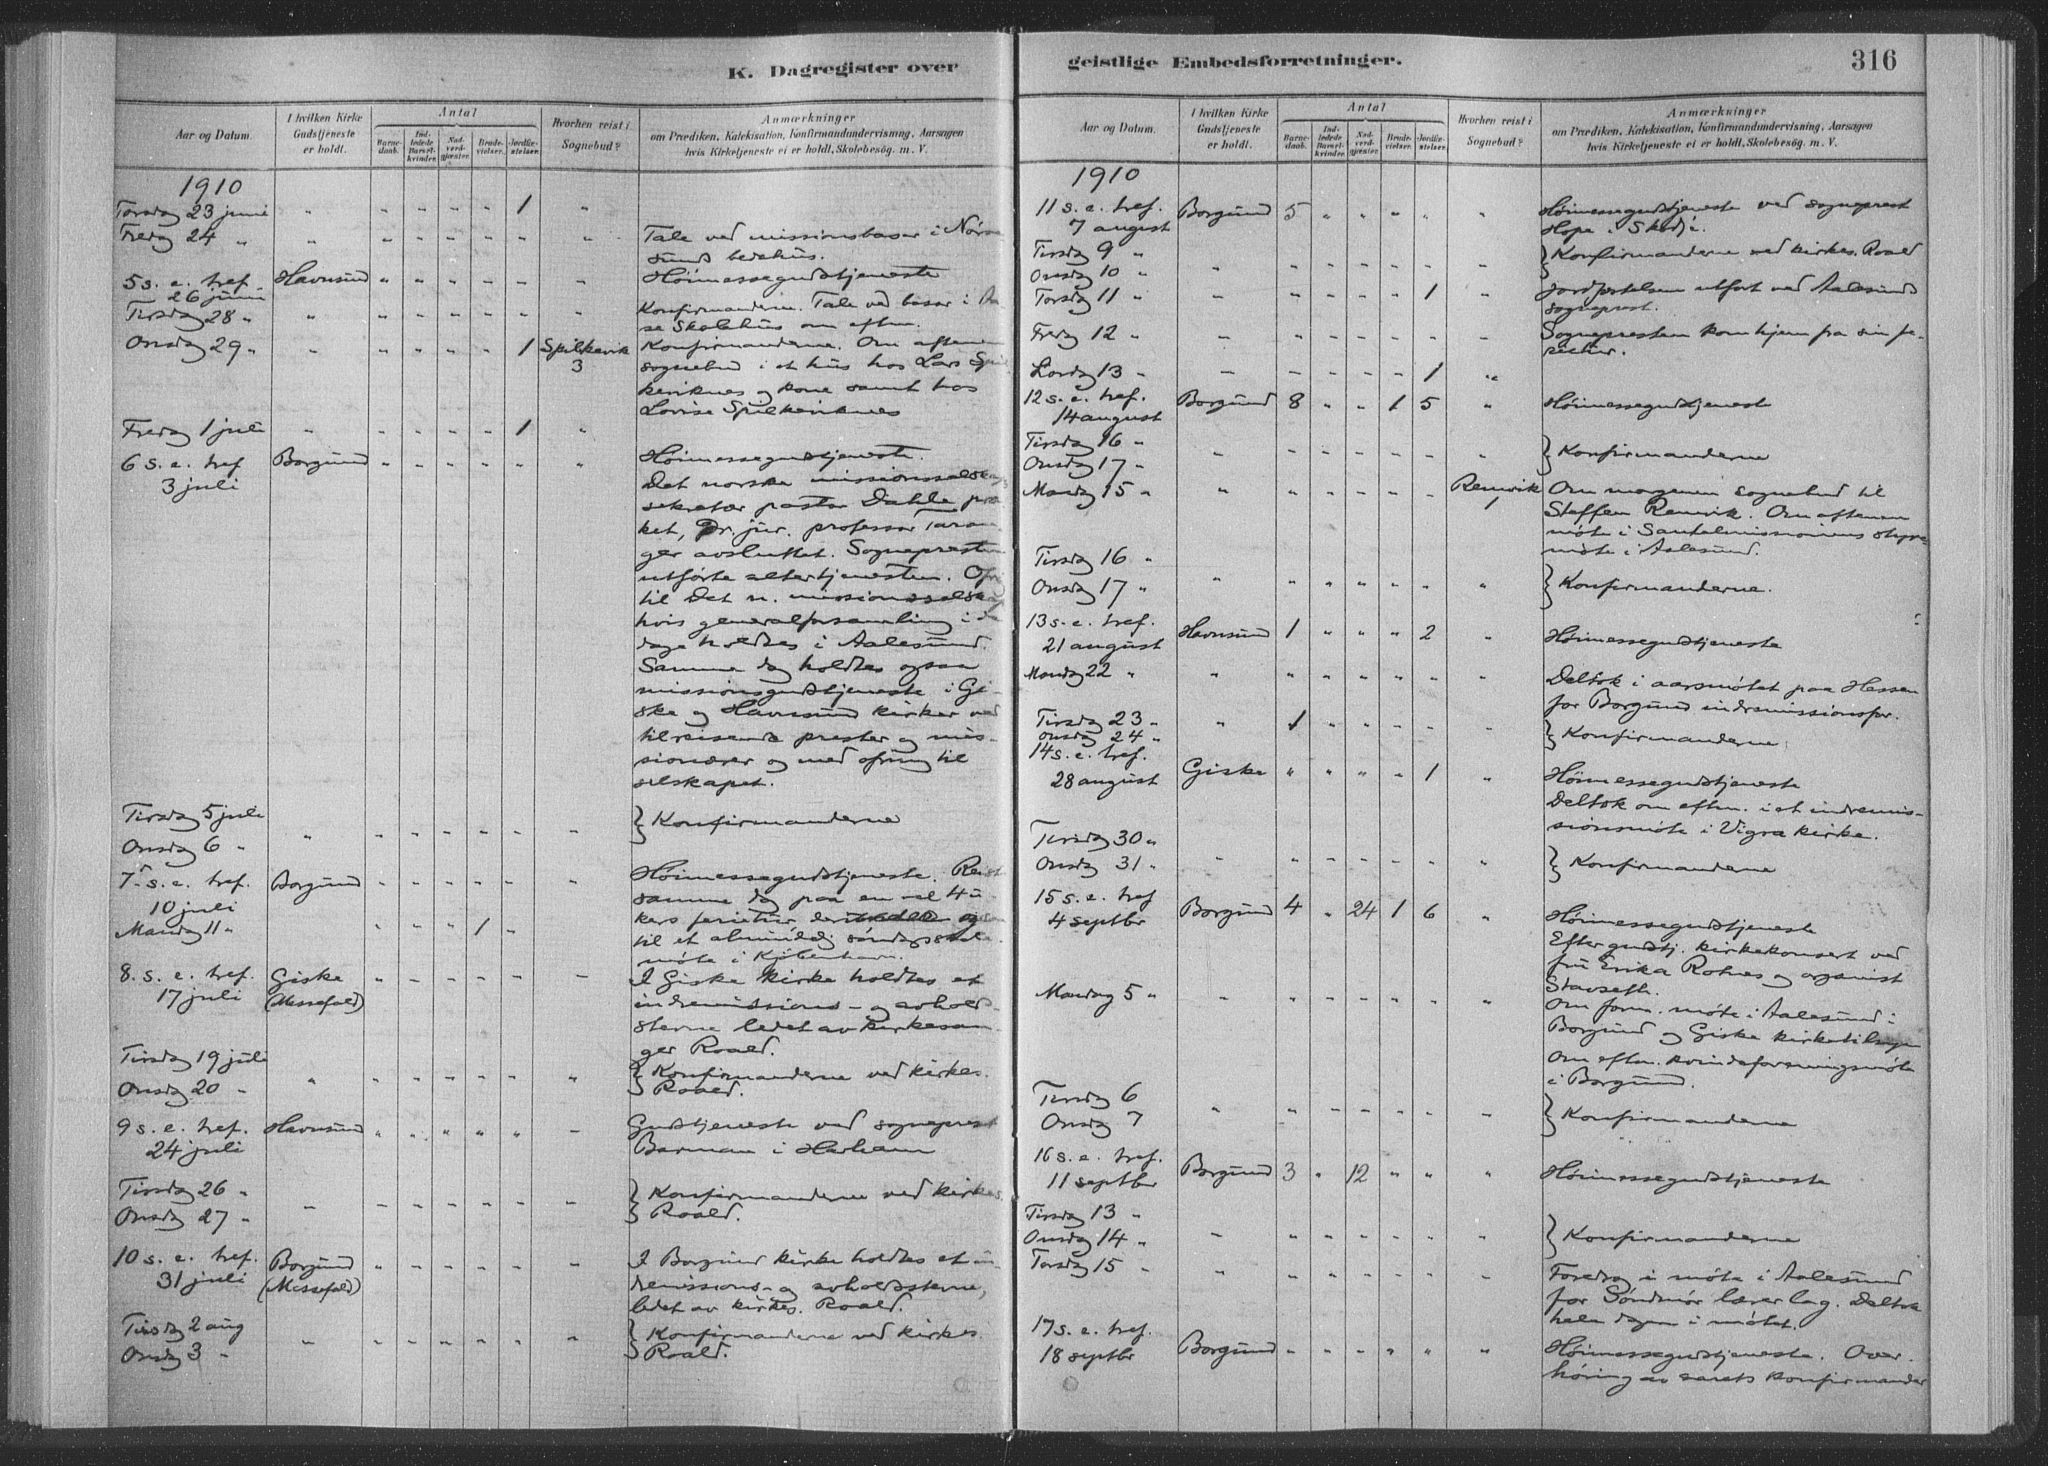 K. Dagregister over
Aar og Datum.
I hvilken Kirke Gudstjeneste er holdt.
Antal
Barnedaab.
Indledede Barselkvinder.
Nadverdgjæster.
Brudevielser.
Jordfæstelser.
Hvorhen reist i Sognebud?
Anmærkninger
om Prædiken, Katekisation, Konfirmandundervisning, Aarsagen
hvis Kirketjeneste ei er holdt, Skolebesøg. m. V.
1910
Torsdag 23 juni " " " " " 1 "
Fredag 24 " " " " " " " " Tale ved missionsbasar i Nørve
sunds bedehus.
5 s. e. tref. Havnsund " " " " " " Høimessegudstjeneste
26 juni
Tirsdag 28 " " " " " " " " Konfirmanderne. Tale ved basar i Aa
se Skolehus om eftm.
Onsdag 29 " " " " " " 1 Spilkevik Konfirmanderne. Om aftenen
3 sognebud i et hus hos Lars Spil
keviknes og kone samt hos
Lovise Spilkeviknes
Fredag 1 juli " " " " " 1 "
6 s. e. tref Borgund " " " " " " Høimessegudstjeneste.
3 juli Det norske missionsselskaps
sekretær pastor Dahle præ
ket, Dr. jur. professor Taran
ger avsluttet. Sognepresten
utførte altertjenesten. Ofring
til Det n. missionsselskap
hvis generalforsamling i di
dage holdtes i Aalesund.
Samme dag holdtes ogsaa
missionsgudstjeneste i Gi
ske og Havnsund kirker ved
tilreisende prester og mis-
sionærer og med ofring til
selskapet.
Tirsdag 5 juli } Konfirmanderne
Onsdag 6 " " " " " " " "
7. s. e. tref. Borgund " " " " " " Høimessegudstjeneste. Reist
10 juli samme dag paa en vel 4 u-
kers ferietur,
Mandag 11 " " " " 1 " til et almindelig søndagsskole
møte i Kjøbenhavn.
8. s. e. tref. Giske " " " " " " I Giske kirke holdtes et
17 juli (Messefald) indremissions- og avhold
stevne ledet av kirkesan-
ger Roald.
Tirsdag 19 juli } Konfirmanderne ved kirkes.
Onsdag 20 " " " " " " " " Roald.
9 s. e. tref. Havnsund " " " " " " Gudstjeneste ved sogneprest
24 juli Barman i Harham
Tirsdag 26 " } Konfirmanderne ved kirkes.
Onsdag 27 " " " " " " " " Roald.
10 s. e. tref. Borgund " " " " " " I Borgund kirke holdtes et in
31 juli (Messefald) dremissions- og avholdsstevne,
ledet av kirkes. Roald.
Tirsdag 2 aug } Konfirmanderne ved kirkes.
Onsdag 3 " " " " " " " " Roald.
geistlige Embedsforretninger.
316
Aar og Datum.
I hvilken Kirke Gudstjeneste er holdt.
Antal
Barnedaab.
Indledede Barselkvinder.
Nadverdgjæster.
Brudevielser.
Jordfæstelser.
Hvorhen reist i Sognebud?
Anmærkninger
om Prædiken, Katekisation, Konfirmandundervisning, Aarsagen
hvis Kirketjeneste ei er holdt, Skolebesøg. m. V.
1910
11 s. e. tref. Borgund 5 " " " " " Høimessegudstjeneste ved sogneprest
7 august Hope i Skodje.
Tirsdag 9 " } Konfirmanderne ved kirkes. Roald
Onsdag 10 " " " " " " " "
Torsdag 11 " " " " " " 1 " Jordfestelsen utført ved Aalesunds
sogneprest.
Fredag 12 " " " " " " " " Sognepresten kom hjem fra sin fe-
rietur.
Lørdag 13 " " " " " " 1 "
12 s. e. tref. Borgund 8 " " 1 5 " Høimessegudstjeneste
14 august
Tirsdag 16 " } Konfirmanderne
Onsdag 17 " " " " " " " "
Mandag 15 " " " " " " " Remvik Om morgenen sognebud til
1 Steffen Remvik. Om aftenen
møte i Santalmissionens styre-
møte i Aalesund.
Tirsdag 16 "
Onsdag 17 " " " " " " " " } Konfirmanderne.
13 s. e. tref. Havnsund 1 " " " 2 " Høimessegudstjeneste
21 august
Mandag 22 " " " " " " " " Deltok i aarsmøtet paa Hessen
for Borgund indremissionsfor.
Tirsdag 23 " " 1 " " " " " } Konfirmanderne
Onsdag 24 "
14 s. e. tref. Giske " " " " 1 " Høimessegudstjeneste
28 august Deltok om eftm. i et indremis-
sionsmøte i Vigra kirke.
Tirsdag 30 "
Onsdag 31 " " " " " " " " } Konfirmanderne
15 s. e. tref Borgund 4 " 24 1 6 " Høimessegudstjeneste
4 septbr Efter gudstj. kirkekonsert ved
fru Erika Rotnes og organist
Stavseth.
Mandag 5 " " " " " " " " Om form. møte i Aalesund i
Borgund og Giske kirketilsyn
Om eftm. kvindeforeningsmøte
i Borgund.
Tirsdag 6
Onsdag 7 " " " " " " " } Konfirmanderne
16 s. e. tref. Borgund 3 " 12 " " " Høimessegudstjeneste
11 septbr
Tirsdag 13 "
Onsdag 14 " " " " " " " " } Konfirmanderne
Torsdag 15 " " " " " " " Foredrag i møte i Aalesund
for Søndmør lærerlag. Deltok
hele dagen i møtet.
17 s. e. tref. Borgund " " " " " " Høimessegudstjeneste. Over-
18 septbr høring av aarets konfirmander